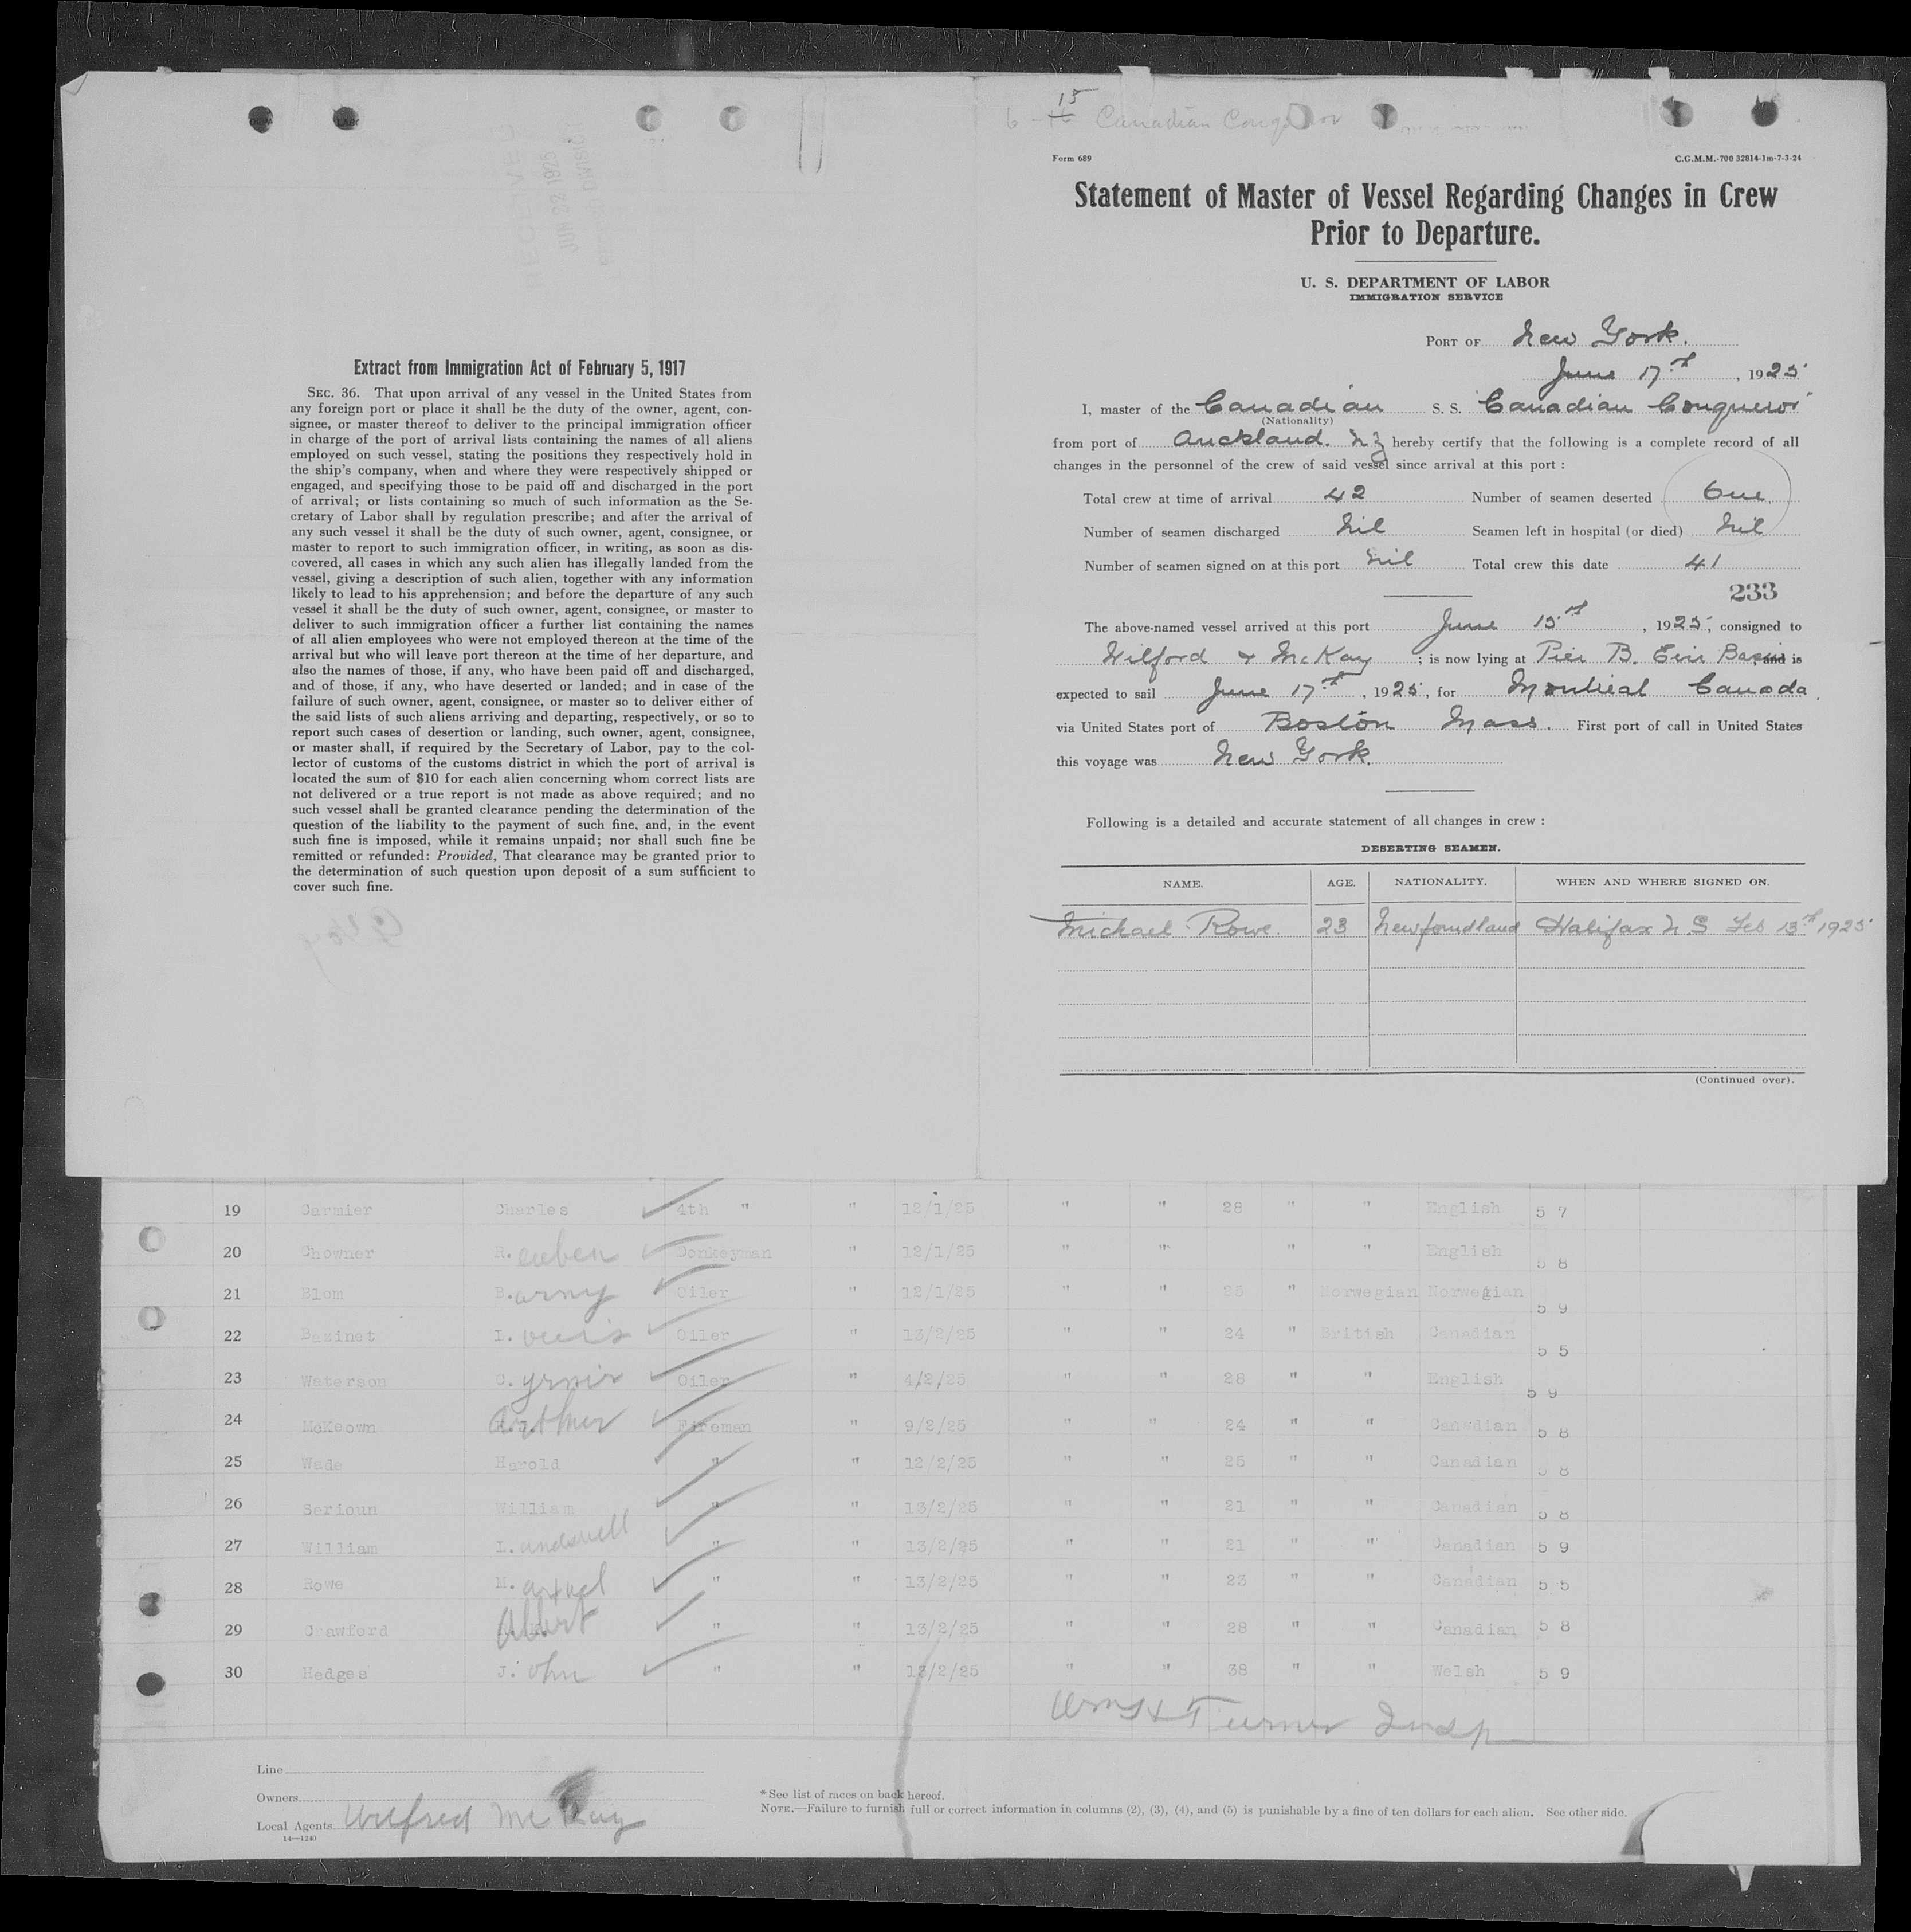 6-15 Canadian Conqueror
Form 689
C.G.M.M.-700 32814-1m-7-3-24
Statement of Master of Vessel Regarding Changes in Crew
Prior to Departure.
U. S. DEPARTMENT OF LABOR
IMMIGRATION SERVICE
PORT OF New York.
June 17th, 1925
I, master of the Canadian S. S. Canadian Conqueror
(Nationality)
from port of Auckland. N Z hereby certify that the following is a complete record of all
changes in the personnel of the crew of said vessel since arrival at this port :
Total crew at time of arrival 42 Number of seamen deserted One.
Number of seamen discharged Nil Seamen left in hospital (or died) Nil
Number of seamen signed on at this port Nil Total crew this date 41
233
The above-named vessel arrived at this port June 15th, 1925, consigned to
Wilford & McKay ; is now lying at Pier B. Erie Basin and is
expected to sail June 17th, 1925, for Montreal Canada.
via United States port of Boston Mass. First port of call in United States
this voyage was New York.
Following is a detailed and accurate statement of all changes in crew :
DESERTING SEAMEN.
NAME. AGE. NATIONALITY. WHEN AND WHERE SIGNED ON.
Michael Rowe. 23 Newfoundland Halifax N S Feb 13th 1925
(Continued over).
RECEIVED
JUN 22 1925
DIVISION
Extract from Immigration Act of February 5, 1917
SEC. 36. That upon arrival of any vessel in the United States from
any foreign port or place it shall be the duty of the owner, agent, con-
signee, or master thereof to deliver to the principal immigration officer
in charge of the port of arrival lists containing the names of all aliens
employed on such vessel, stating the positions they respectively hold in
the ship's company, when and where they were respectively shipped or
engaged, and specifying those to be paid off and discharged in the port
of arrival; or lists containing so much of such information as the Se-
cretary of Labor shall by regulation prescribe; and after the arrival of
any such vessel it shall be the duty of such owner, agent, consignee, or
master to report to such immigration officer, in writing, as soon as dis-
covered, all cases in which any such alien has illegally landed from the
vessel, giving a description of such alien, together with any information
likely to lead to his apprehension; and before the departure of any such
vessel it shall be the duty of such owner, agent, consignee, or master to
deliver to such immigration officer a further list containing the names
of all alien employees who were not employed thereon at the time of the
arrival but who will leave port thereon at the time of her departure, and
also the names of those, if any, who have been paid off and discharged,
and of those, if any, who have deserted or landed; and in case of the
failure of such owner, agent, consignee, or master so to deliver either of
the said lists of such aliens arriving and departing, respectively, or so to
report such cases of desertion or landing, such owner, agent, consignee,
or master shall, if required by the Secretary of Labor, pay to the col-
lector of customs of the customs district in which the port of arrival is
located the sum of $10 for each alien concerning whom correct lists are
not delivered or a true report is not made as above required; and no
such vessel shall be granted clearance pending the determination of the
question of the liability to the payment of such fine, and, in the event
such fine is imposed, while it remains unpaid; nor shall such fine be
remitted or refunded: Provided, That clearance may be granted prior to
the determination of such question upon deposit of a sum sufficient to
cover such fine.
19 Carmier Charles 4th " " 12/1/25 " " 28 " " English 5 7
20 Chowner R.euben Donkeyman " 12/1/25 " " " " English 5 8
21 Blom B.arny Oiler " 12/1/25 " " 25 " Norwegian Norwegian 5 9
22 Bazinet L.ouis Oiler " 13/2/25 " " 24 " British Canadian 5 5
23 Waterson C. Oiler " 4/2/25 " " 28 " " English 5 9
24 McKeown Arthur Fireman " 9/2/25 " " 24 " " Canadian 5 8
25 Wade Harold " " 12/2/25 " " 25 " " Canadian 5 8
26 Serioun William " " 13/2/25 " " 21 " " Canadian 5 8
27 William L. " " 13/2/25 " " 21 " " Canadian 5 9
28 Rowe M. " " 13/2/25 " " 23 " " Canadian 5 5
29 Crawford Albert " " 13/2/25 " " 28 " " Canadian 5 8
30 Hedges J.ohn " " 13/2/25 " " 38 " " Welsh 5 9
Wm H Turner Insp
Line
Owners
Local Agents Wilfred McKay
14—1240
* See list of races on back hereof.
NOTE.—Failure to furnish full or correct information in columns (2), (3), (4), and (5) is punishable by a fine of ten dollars for each alien. See other side.